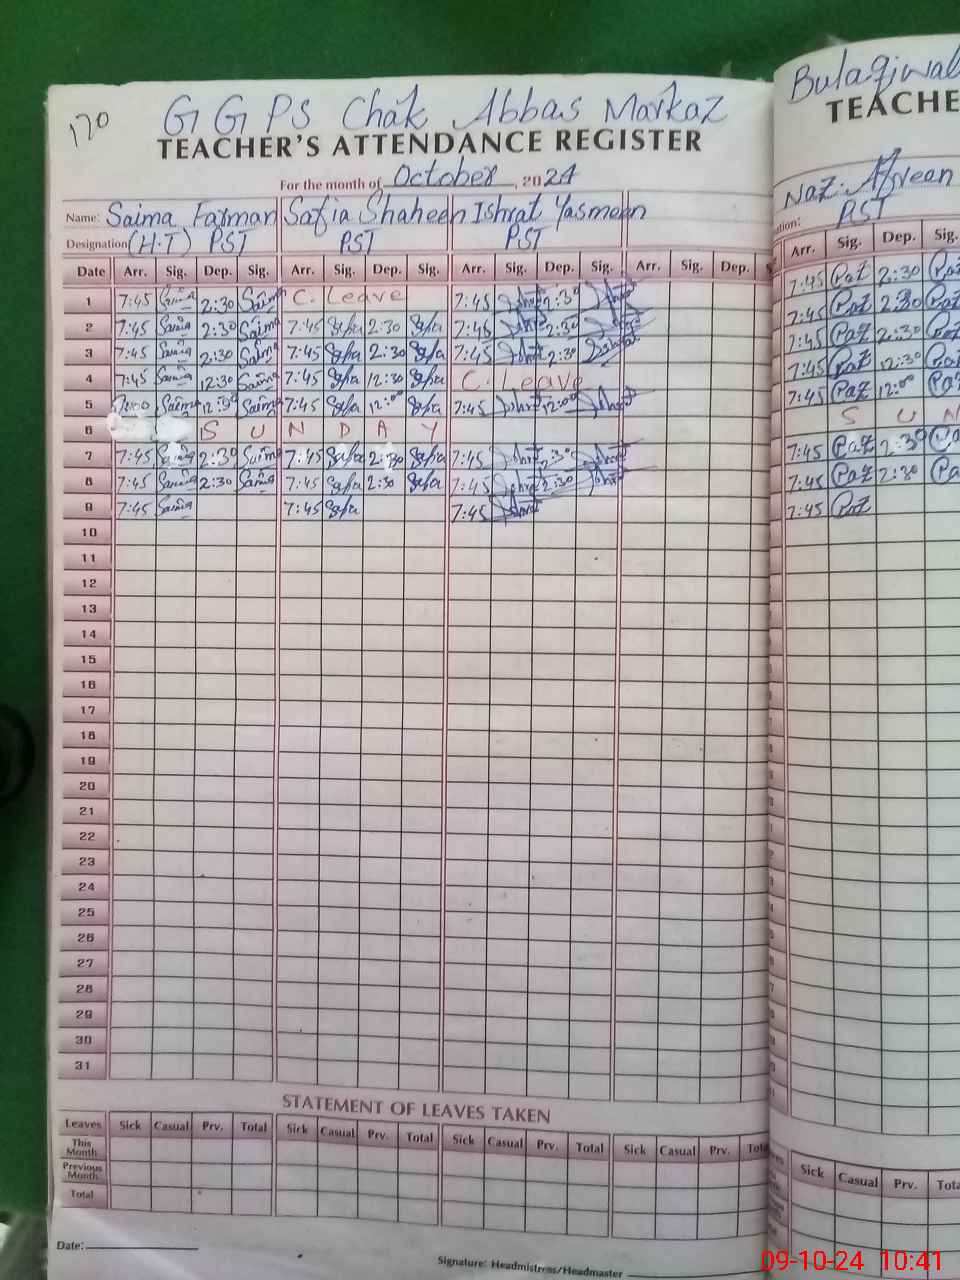 170
G G P S Chak Abbas Markaz
TEACHER'S ATTENDANCE REGISTER
For the month of October, 2024
Name: Saima Farman Safia Shaheen Ishrat Yasmeen
Designation (H.T) PST PST PST
Date Arr. Sig. Dep. Sig. Arr. Sig. Dep. Sig. Arr. Sig. Dep. Sig. Arr. Sig. Dep.
1 7:45 Saima 2:30 Saima C. Leave 7:45 Ishrat 2:30 Ishrat
2 7:45 Saima 2:30 Saima 7:45 Safia 2:30 Safia 7:45 Ishrat 2:30 Ishrat
3 7:45 Saima 2:30 Saima 7:45 Safia 2:30 Safia 7:45 Ishrat 2:30 Ishrat
4 7:45 Saima 12:30 Saima 7:45 Safia 12:30 Safia C. Leave
5 Saima Saima 7:45 Safia 12:00 Safia 7:45 Ishrat 12:00 Ishrat
6 S U N D A Y
7 7:45 Saima 2:30 Saima 7:45 Safia 2:30 Safia 7:45 Ishrat 2:30 Ishrat
8 7:45 Saima 2:30 Saima 7:45 Safia 2:30 Safia 7:45 Ishrat 2:30 Ishrat
9 7:45 Saima 7:45 Safia 7:45 Ishrat
10
11
12
13
14
15
16
17
18
19
20
21
22
23
24
25
26
27
28
29
30
31
STATEMENT OF LEAVES TAKEN
Leaves Sick Casual Prv. Total Sick Casual Prv. Total Sick Casual Prv. Total Sick Casual Prv. Total
This Month
Previous Month
Total
Date:
Signature: Headmistress/Headmaster
Bulaqiwal
TEACHE
Naz: Afreen
ation: PST
Arr. Sig. Dep. Sig.
7:45 2:30
7:45 2:30
7:45 2:30
7:45 12:30
7:45 12:00
S U N
7:45 2:30
7:45 2:30
7:45
Sick Casual Prv. Tota
09-10-24 10:41